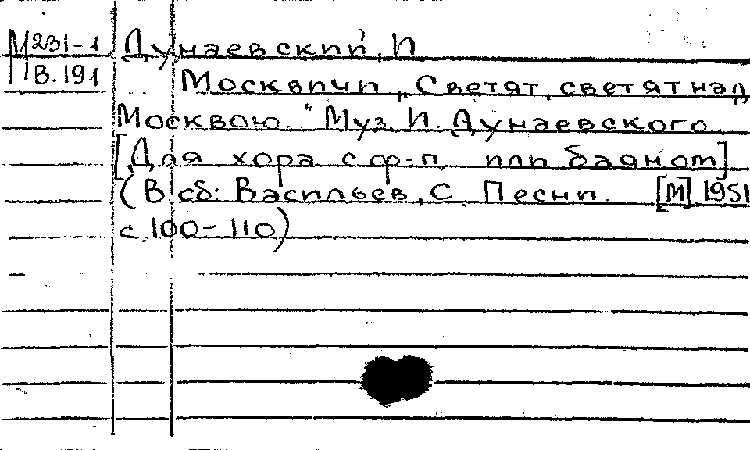 М 231-1 Дунаевский, И.
В.191 Москвичи „Светят, светят над
Москвою." Муз. И. Дунаевского
[Для хора с ф-п. или баяном]
(В сб: Васильев, С. Песни. [М] 1951
с. 100-110)